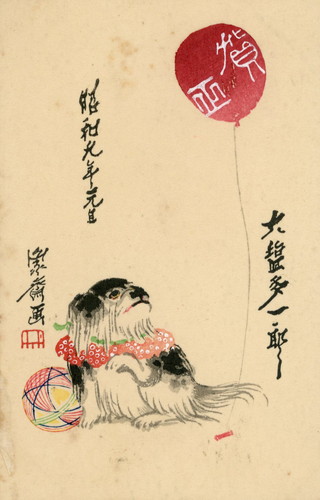 賀正
大 多一郎
昭和九年元旦
齋画